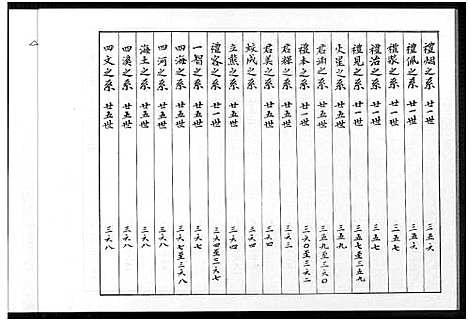 禮烟之系 廿一世 三五六
禮佩之系 廿一世 三五六
禮家之系 廿一世 三五七
禮治之系 廿一世 三五七
禮見之系 廿一世 三五七至三五九
火星之系 廿五世 三五九
君湖之系 廿五世 三五九至三六〇
禮本之系 廿一世 三六〇至三六二
君輝之系 廿五世 三六三
君美之系 廿五世 三六四
蛟成之系 三六四
立熊之系 廿五世 三六四
禮容之系 廿一世 三六四至三六七
一智之系 廿五世 三六七
四海之系 廿五世 三六七至三六八
四河之系 廿五世 三六八
海土之系 廿五世 三六八
四溪之系 廿五世 三六八
四文之系 廿五世 三六八